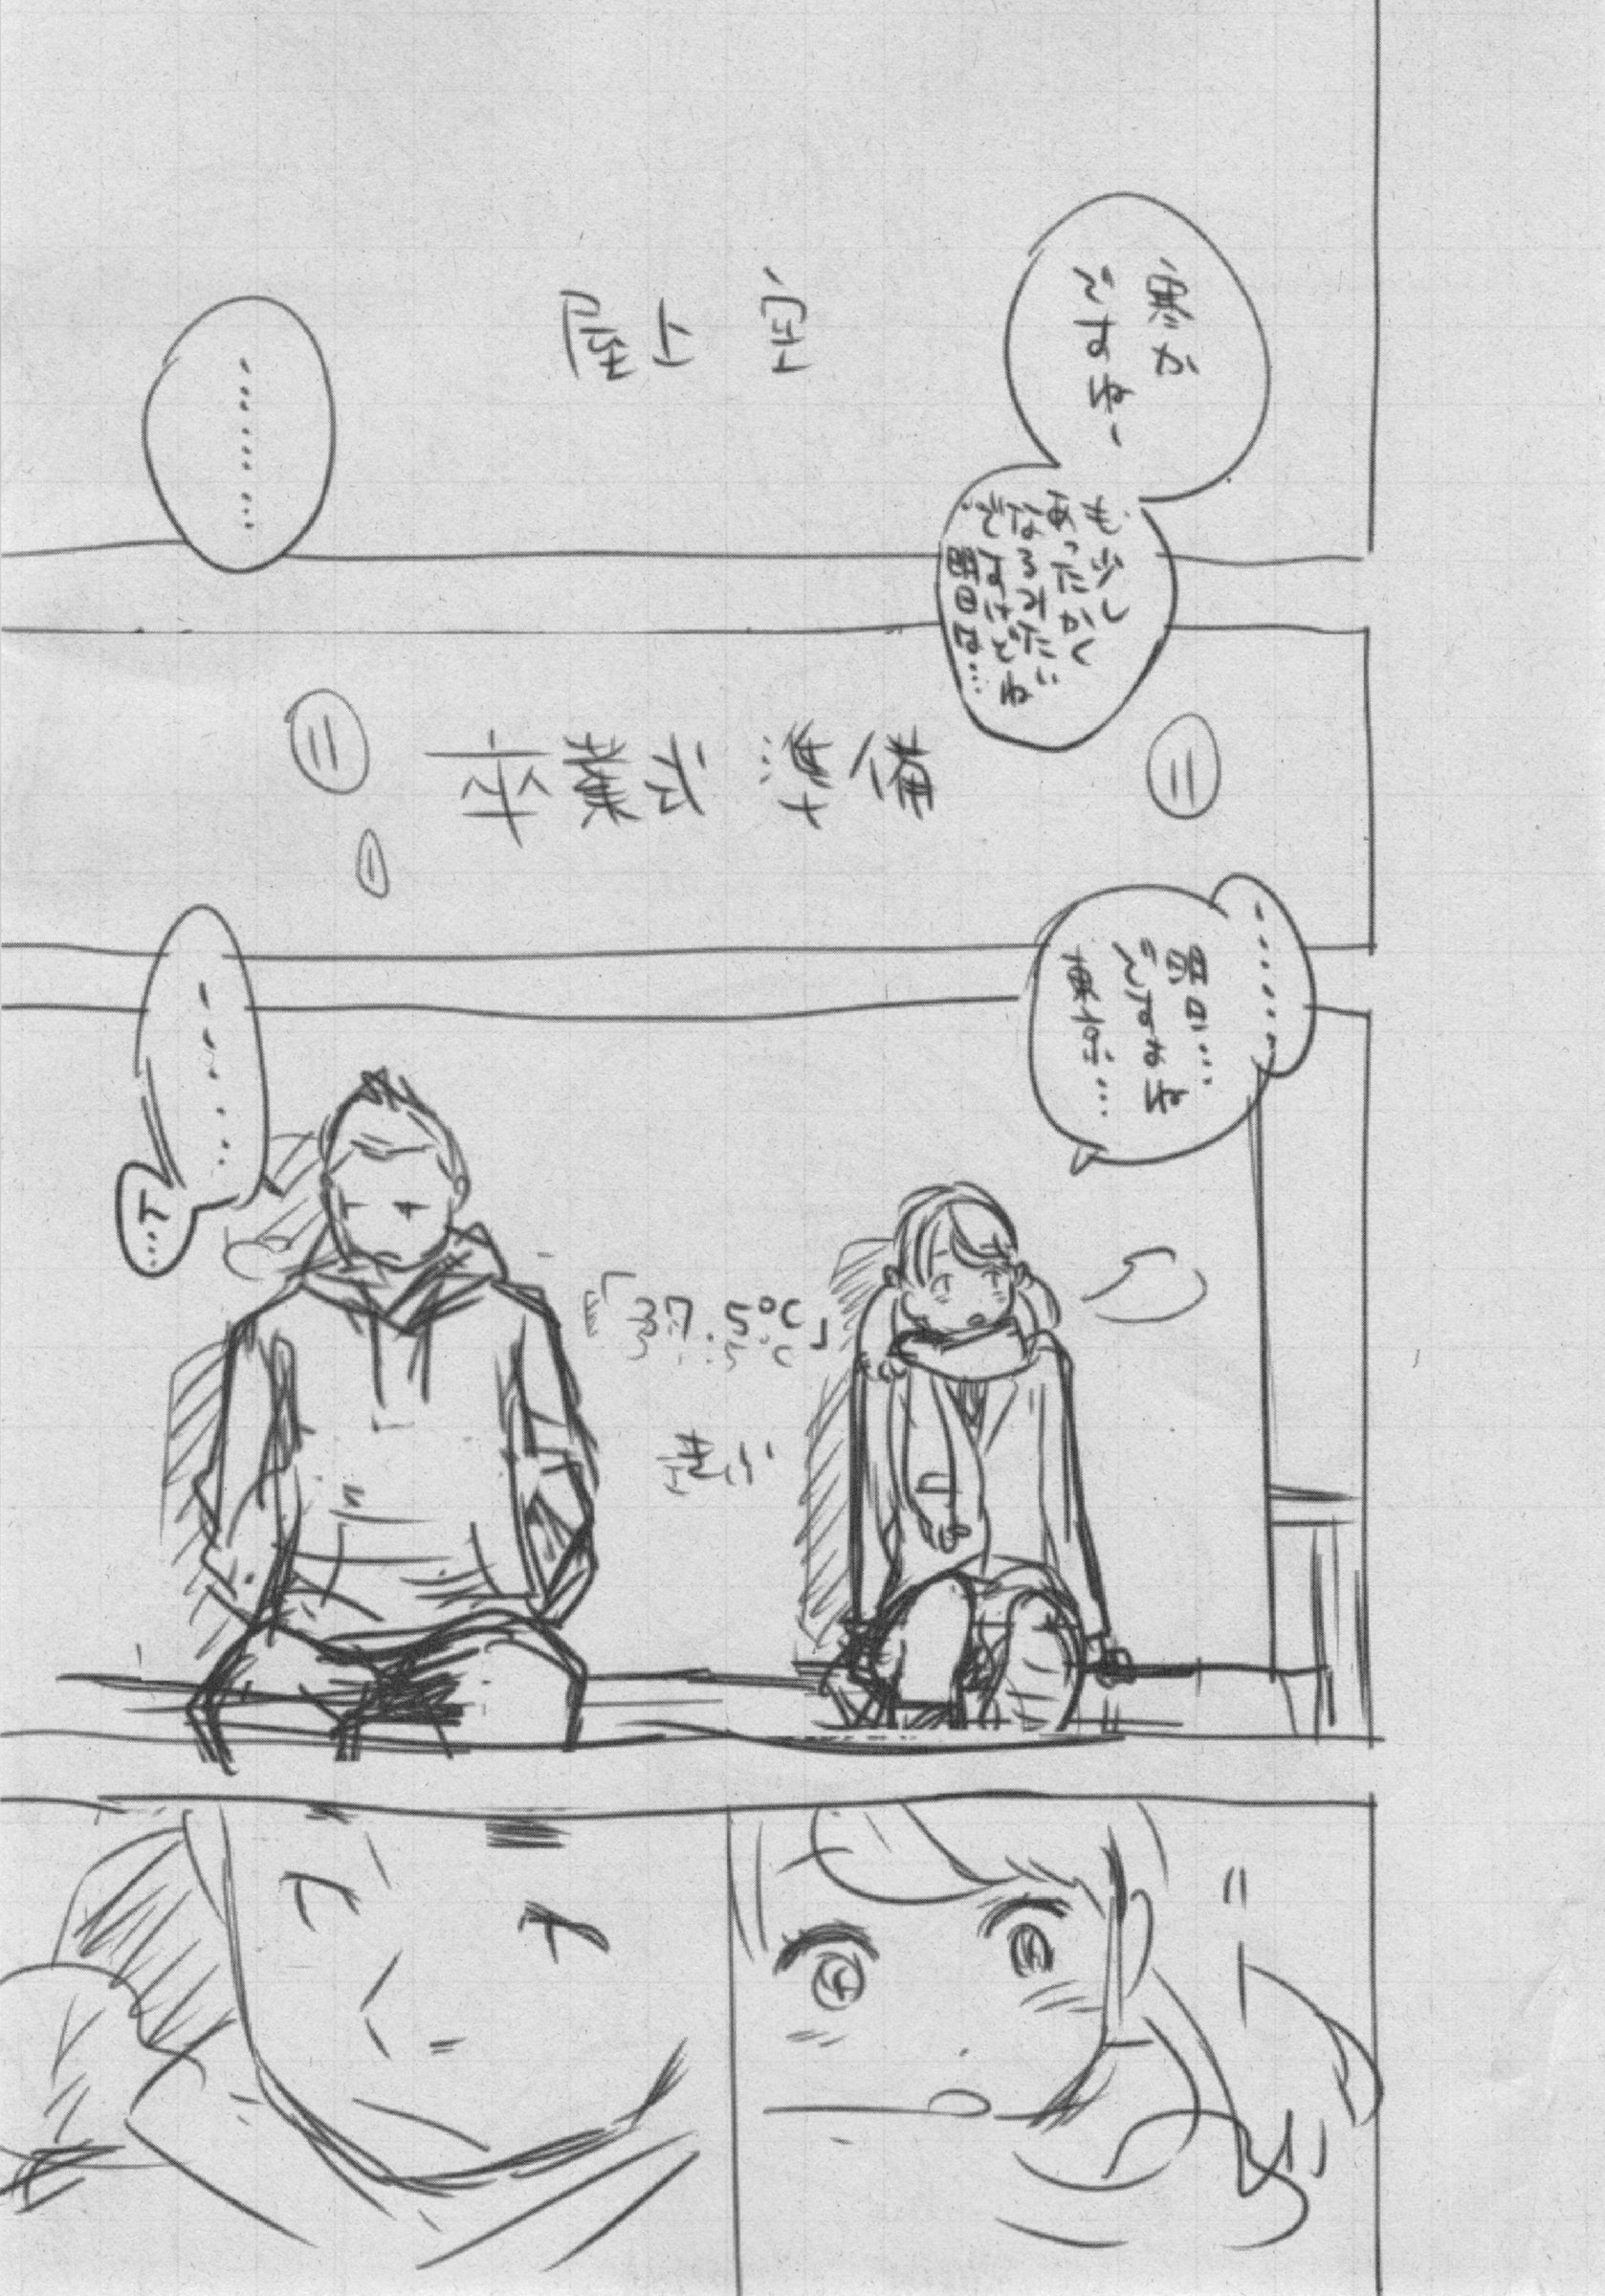 寒か
ですねー
も少し
あったかく
なるみたい
ですけどね
明日は…
………
屋上 空
卒業式 準備
………
県日…
ですよね
………
…
「37.5℃」